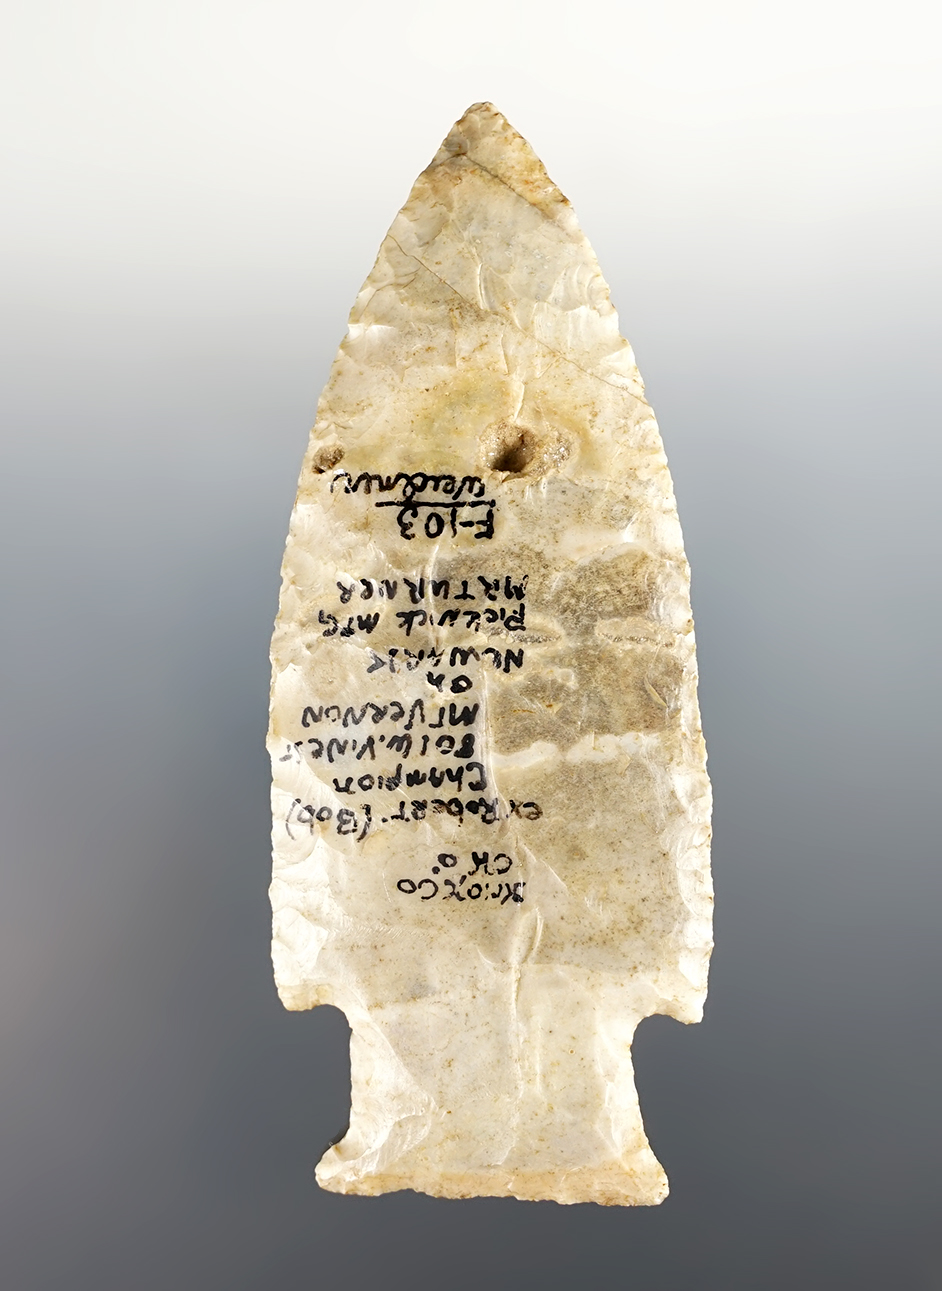 Knox Co
OHIO
ex Robert (Bob)
Champion
801 W. Vine St
MT VERNON
Oh
NEWARK
MTG
MR TURNER
F-103
Weidner